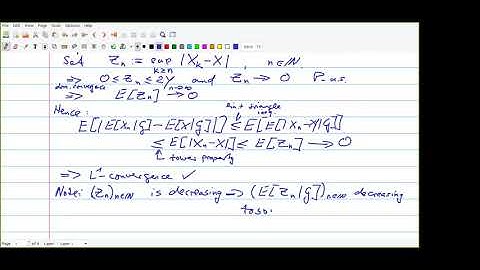 Set Z_n := sup_{k≥n} |X_k - X| , n ∈ ℕ.
⇒ 0 ≤ Z_n ≤ 2Y and Z_n → 0 P-a.s.
dom. convergence ⇒ E[Z_n] → 0 n→∞
Hence: triangle
E[|E[X_n|G] - E[X|G]|] ≤ E[E[|X_n - X||G]]
≤ E[|X_n - X|] ≤ E[Z_n] → 0
tower property
⇒ L¹-convergence ✓
Note: (Z_n)_{n∈ℕ} is decreasing ⇒ (E[Z_n|G])_{n∈ℕ} decreasing
too.